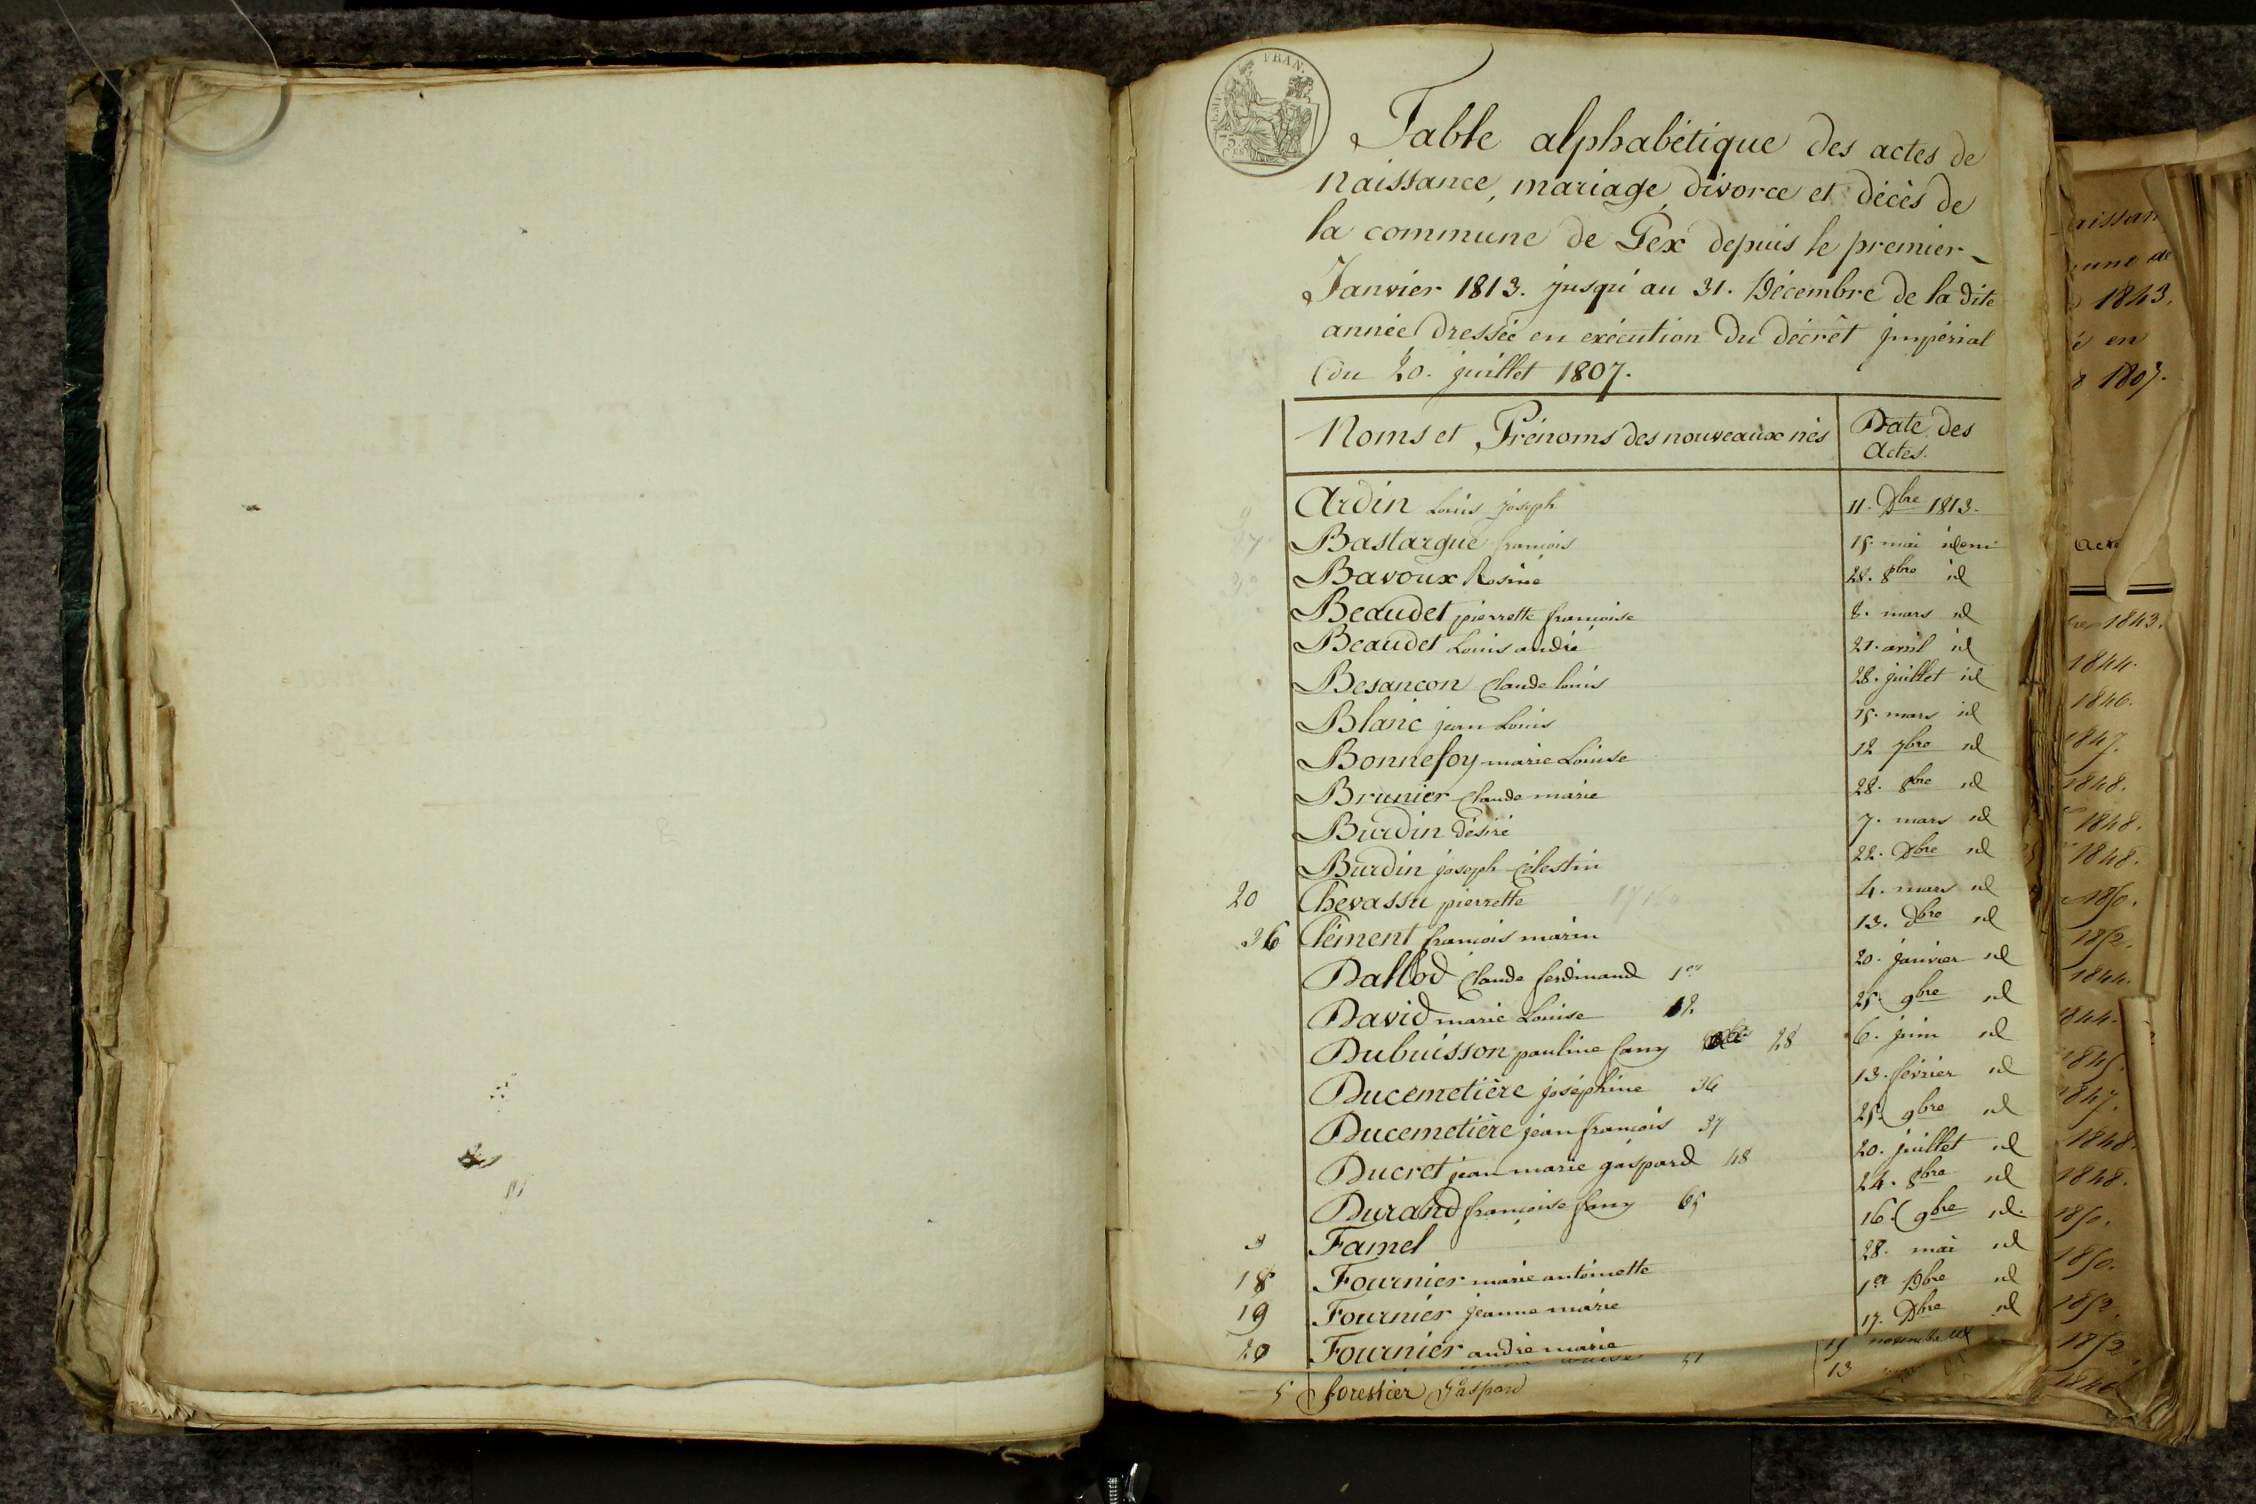 FRAN.
Table alphabétique des actes de
naissance, mariage, divorce et décès de
la commune de Gex depuis le premier
Janvier 1813. jusqu'au 31. Décembre de la dite
année dressée en exécution du décrêt impérial
du 20. juillet 1807.
Noms et Prénoms des nouveaux nés Date des Actes.
Ardin Louis joseph 11. Dbre 1813.
Bastargue françois 15. mai idem
Bavoux Rosine 28. 8bre id
Beaudet pierrette françoise 8. mars id
Beaudet Louis andré 21. avril id
Besancon Claude louis 28. juillet id
Blanc jean Louis 15. mars id
Bonnefoy marie Louise 12 7bre id
Brunier Claude marie 28. 8bre id
Burdin désiré 7. mars id
Burdin joseph Célestin 22. Dbre id
20 Chevassu pierrette 4. mars id
36 Clément françois marin 13. Dbre id
Dallod Claude ferdinand 1er 20. janvier id
David marie Louise 12. 25. 9bre id
Dubuisson pauline fany 28 6. juin id
Ducemetière joséphine 36 13. février id
Ducemetière jean françois 37 25. 9bre id
Ducret jean marie gaspard 48 20. juillet id
Durand françoise fany 65 24. 8bre id
3 Famel 16. 9bre id.
18 Fournier marie antoinette 28. mai id
19 Fournier jeanne marie 1er Dbre id
20 Fournier andré marie 17. Dbre id
51 15 novembre
5 forestier Gaspard 13
1843.
en
1807.
Acte
1843.
1844.
1846.
1847.
1848.
1848.
1848.
1850.
1852.
1844.
1844.
1845.
1847.
1848.
1848.
1850.
1850.
1852.
1852